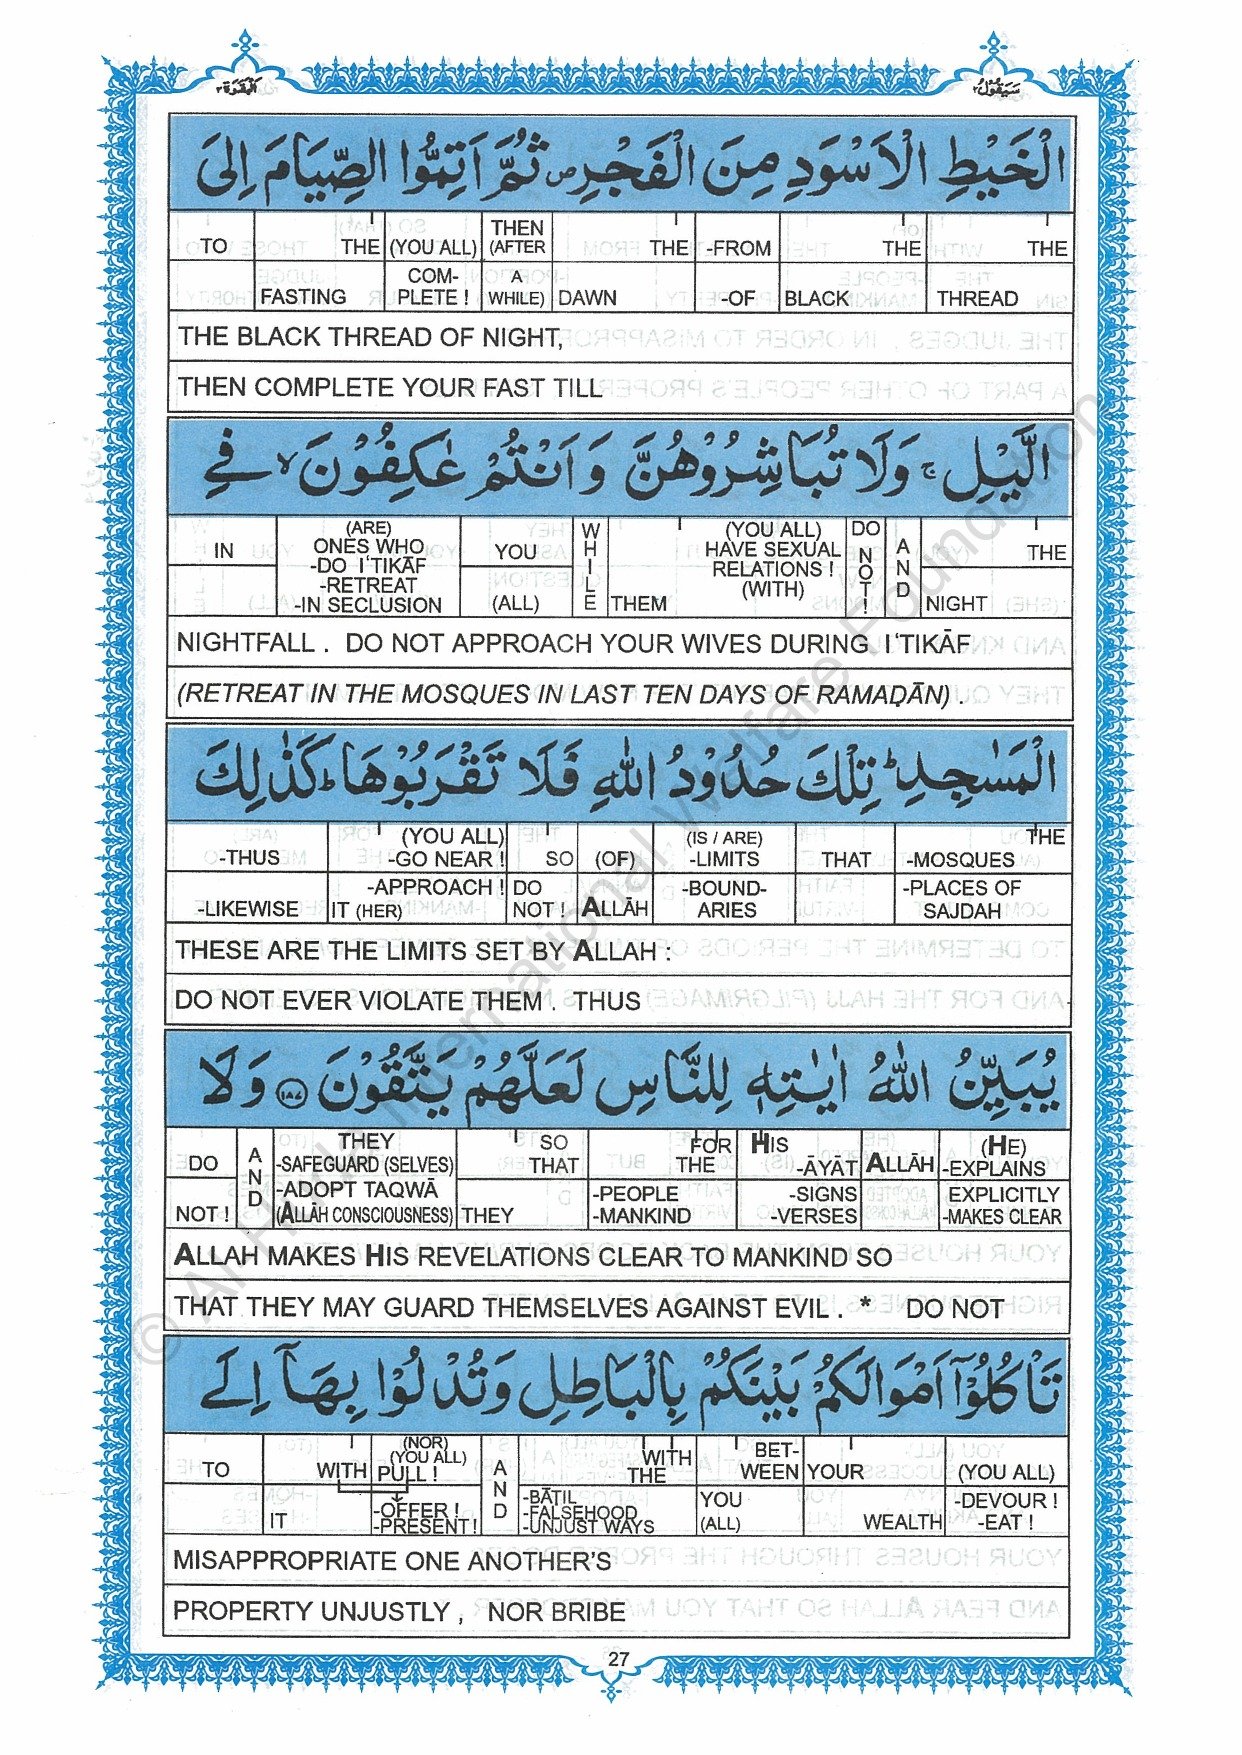 سَيَقُولُ ٢ الْبَقَرَة ٢
الْخَيْطِ الْاَسْوَدِ مِنَ الْفَجْرِ ص ثُمَّ اَتِمُّوا الصِّيَامَ اِلَى
TO THE (YOU ALL) THEN (AFTER THE -FROM THE THE
FASTING COM- PLETE ! A WHILE) DAWN -OF BLACK THREAD
THE BLACK THREAD OF NIGHT,
THEN COMPLETE YOUR FAST TILL
الَّيْلِ ج وَلَا تُبَاشِرُوْهُنَّ وَاَنْتُمْ عٰكِفُوْنَ لا فِي
IN (ARE) ONES WHO -DO I'TIKĀF -RETREAT -IN SECLUSION YOU (ALL) WHILE THEM (YOU ALL) HAVE SEXUAL RELATIONS ! (WITH) DO NOT ! AND THE NIGHT
NIGHTFALL . DO NOT APPROACH YOUR WIVES DURING I'TIKĀF
(RETREAT IN THE MOSQUES IN LAST TEN DAYS OF RAMAḌĀN) .
الْمَسٰجِدِ ط تِلْكَ حُدُوْدُ اللّٰهِ فَلَا تَقْرَبُوْهَا ط كَذٰلِكَ
-THUS (YOU ALL) -GO NEAR ! SO (OF) (IS / ARE) -LIMITS THAT THE -MOSQUES
-LIKEWISE -APPROACH ! IT (HER) DO NOT ! ALLĀH -BOUND- ARIES -PLACES OF SAJDAH
THESE ARE THE LIMITS SET BY ALLAH :
DO NOT EVER VIOLATE THEM . THUS
يُبَيِّنُ اللّٰهُ اٰيٰتِهٖ لِلنَّاسِ لَعَلَّهُمْ يَتَّقُوْنَ ۝١٨٧ وَلَا
DO NOT ! AND THEY -SAFEGUARD (SELVES) -ADOPT TAQWĀ (ALLĀH CONSCIOUSNESS) SO THAT THEY FOR THE -PEOPLE -MANKIND HIS -ĀYĀT -SIGNS -VERSES ALLĀH (HE) -EXPLAINS EXPLICITLY -MAKES CLEAR
ALLAH MAKES HIS REVELATIONS CLEAR TO MANKIND SO
THAT THEY MAY GUARD THEMSELVES AGAINST EVIL . * DO NOT
تَاْكُلُوْٓا اَمْوَالَكُمْ بَيْنَكُمْ بِالْبَاطِلِ وَتُدْلُوْا بِهَآ اِلَى
TO WITH IT (NOR) (YOU ALL) PULL ! -OFFER ! -PRESENT ! AND WITH THE -BĀTIL -FALSEHOOD -UNJUST WAYS BET- WEEN YOU (ALL) YOUR WEALTH (YOU ALL) -DEVOUR ! -EAT !
MISAPPROPRIATE ONE ANOTHER'S
PROPERTY UNJUSTLY , NOR BRIBE
27